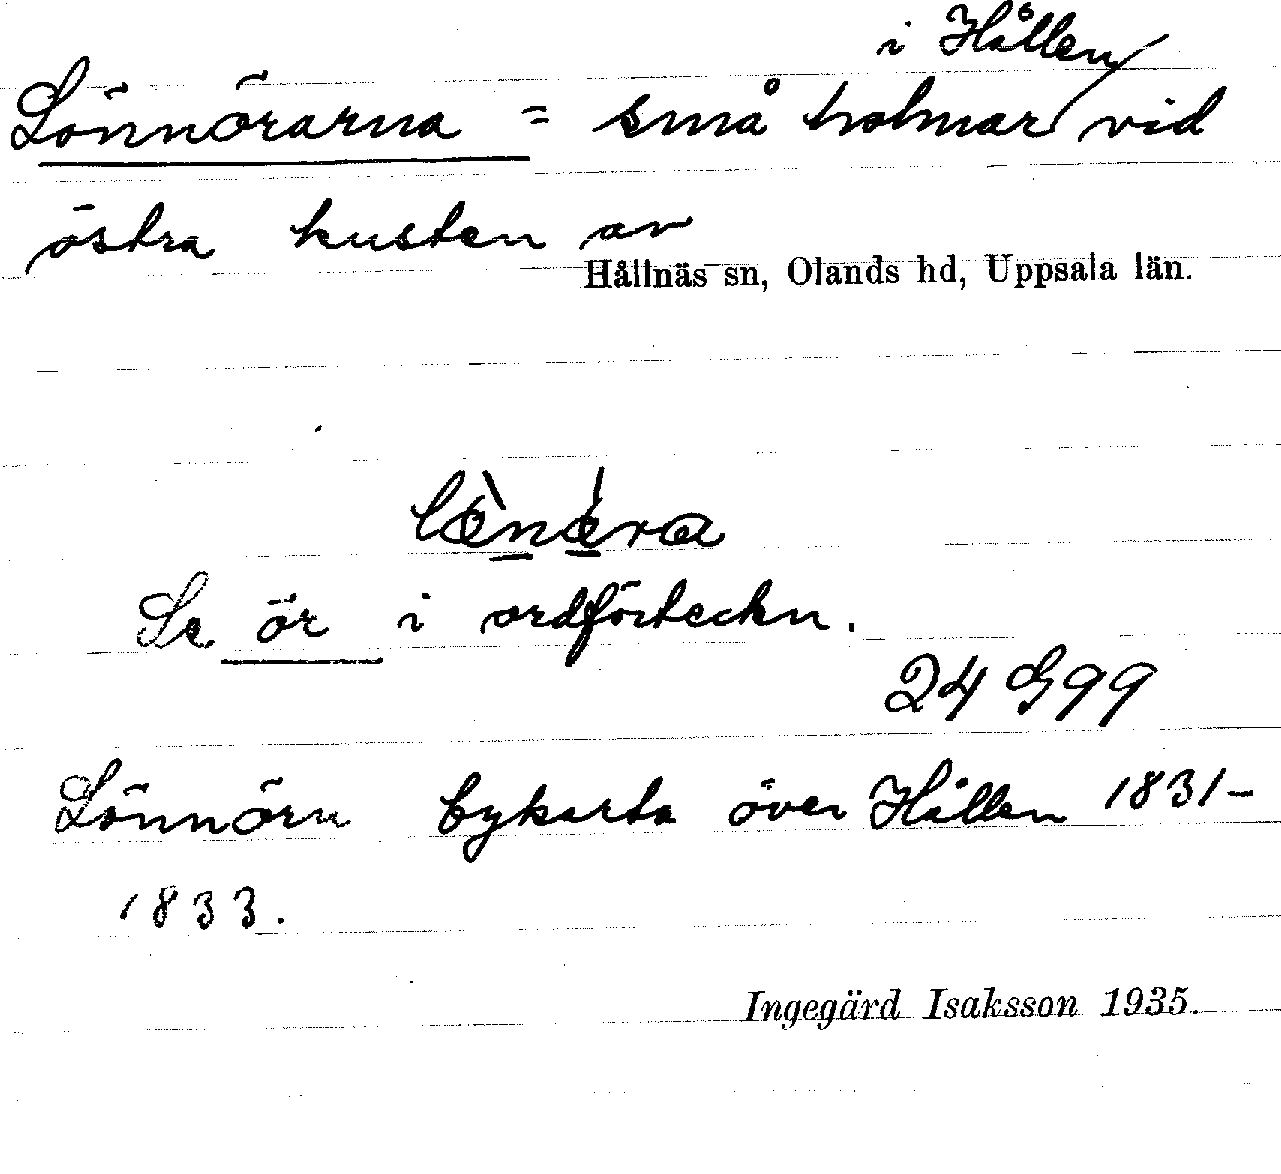 i Hållen
Lönnörarna = små holmar / vid
östra kusten av
Hållnäs sn, Olands hd, Uppsala län.
Se ör i ordförteckn.
24 G 99
Lönnörn bykarta över Hållen 1831-
1833.
Ingegärd Isaksson 1935.